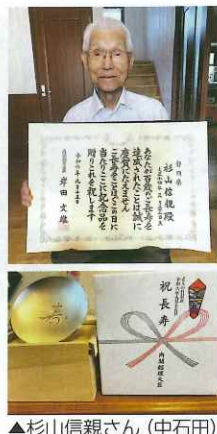 静岡県
杉山信親殿
あなたが百歳のご長寿を
達成されたことは誠に
慶賀にたえません
ここに長寿をことほぐこの日に
当たりここに記念品を
贈りこれを祝します
令和六年九月十五日
内閣総理大臣
岸田文雄
寿
祝長寿
内閣総理大臣
▲杉山信親さん(中石田)